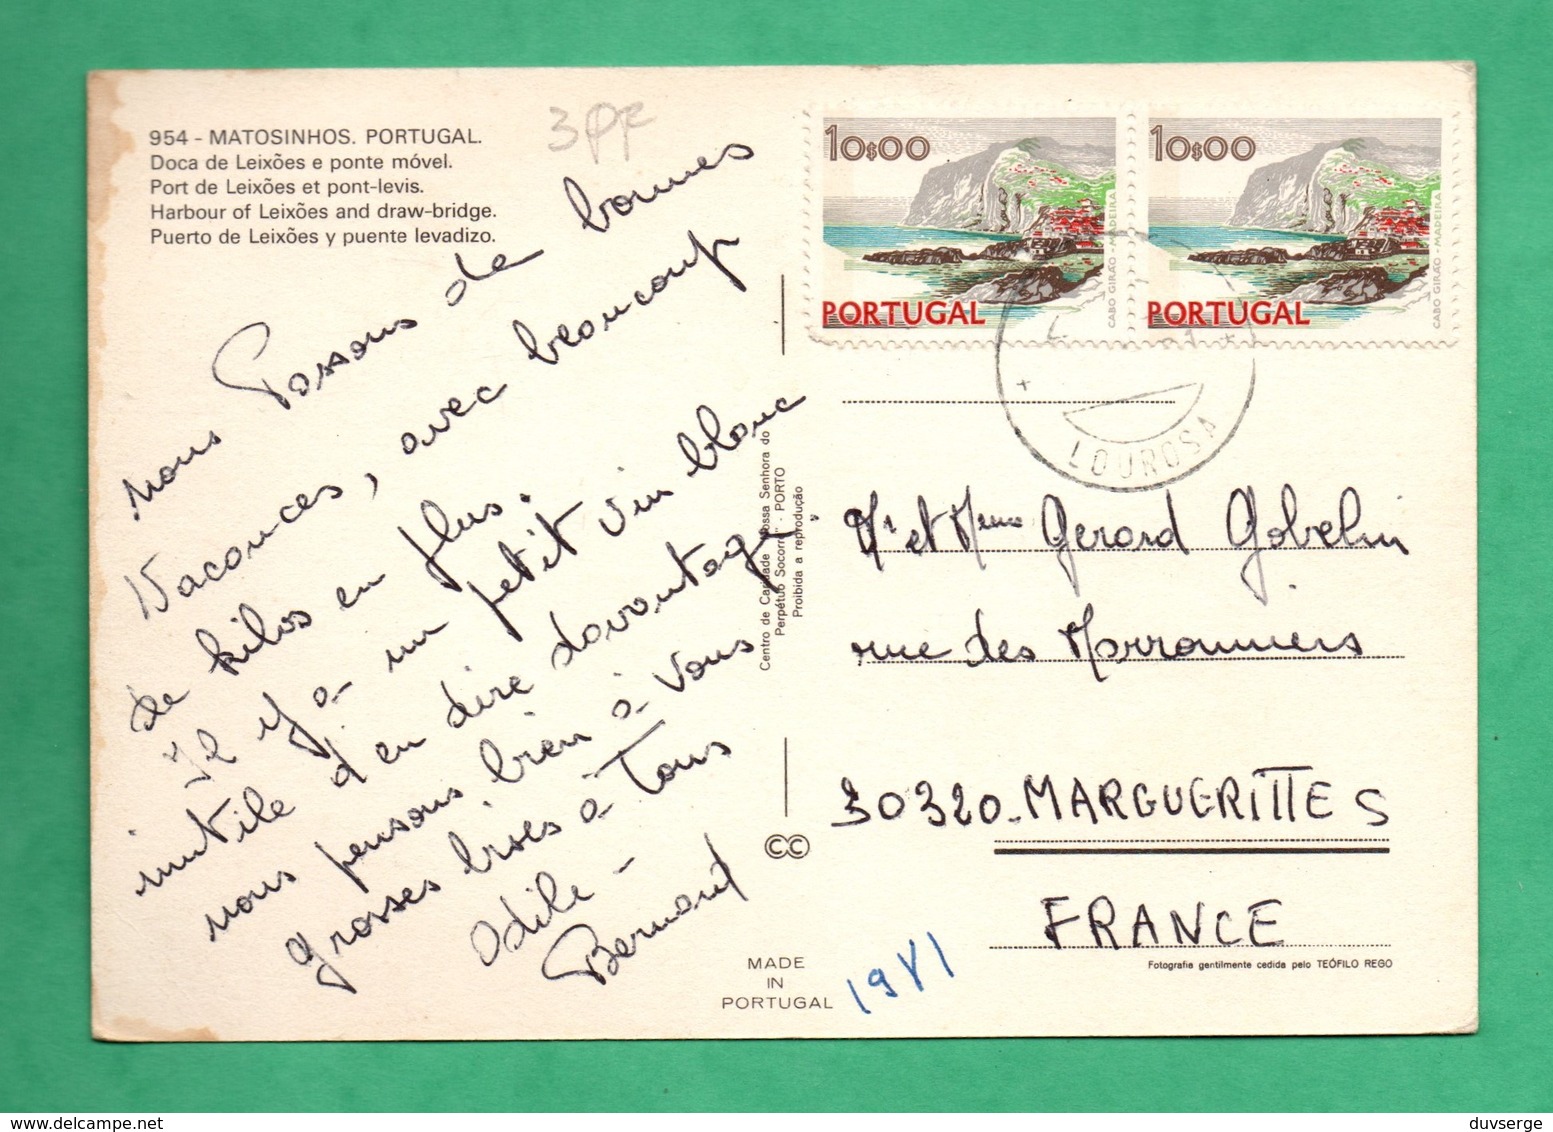 954 - MATOSINHOS. PORTUGAL.
Doca de Leixões e ponte móvel.
Port de Leixões et pont-levis.
Harbour of Leixões and draw-bridge.
Puerto de Leixões y puente levadizo.
3PF
nous Passons de bonnes
Vacances, avec beaucoup
de kilos en plus.
Il y a un petit vin blanc
inutile d'en dire davantage,
nous pensons bien à vous
grosses bises à Tous
Odile - Bernard
Centro de Caridade "Nossa Senhora do
Perpétuo Socorro" - PORTO
Proibida a reprodução
CC
MADE
IN
PORTUGAL
10$00
CABO GIRÃO - MADEIRA
PORTUGAL
10$00
CABO GIRÃO - MADEIRA
PORTUGAL
LOUROSA
Mr et Mme Gerard Gobelin
rue des Marronniers
30320 - MARGUERITTES
FRANCE
Fotografia gentilmente cedida pelo TEÓFILO REGO
1981
duvserge